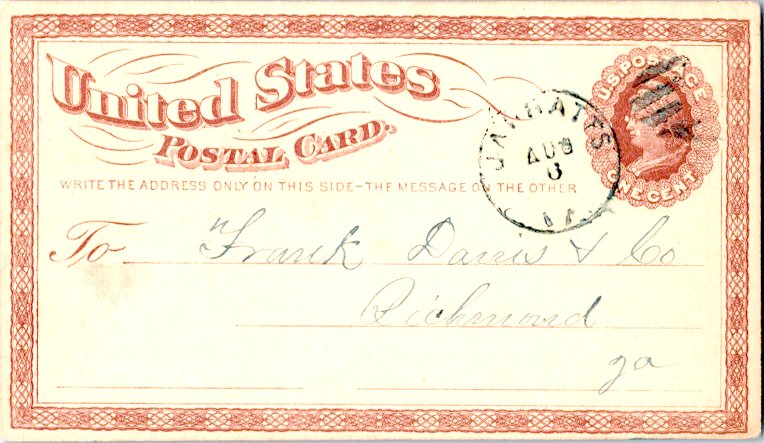 United States
POSTAL CARD.
U.S. POSTAGE
ONE CENT
JARRATTS
AUG
6
VA
WRITE THE ADDRESS ONLY ON THIS SIDE–THE MESSAGE ON THE OTHER
To Frank Davis & Co
Richmond
Va